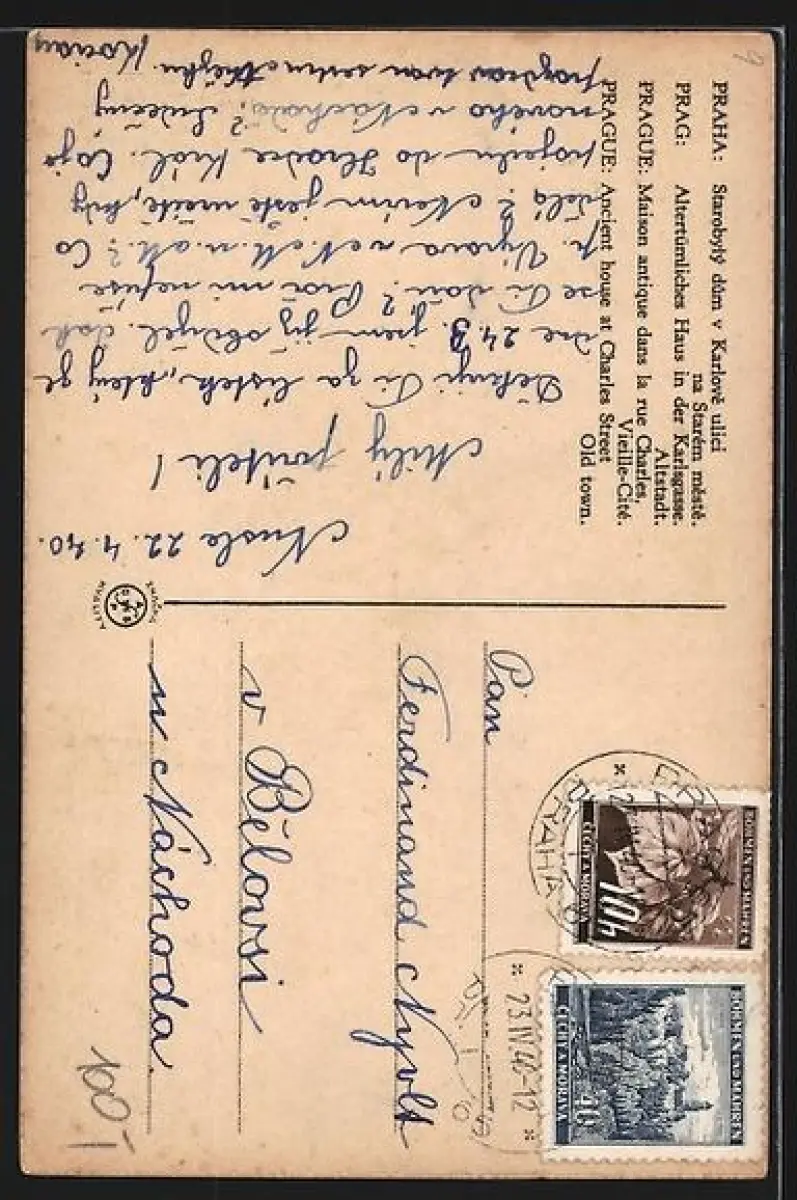 PRAHA: Starobylý dům v Karlově ulici
na Starém městě.
PRAG: Altertümliches Haus in der Karlsgasse.
Altstadt.
PRAGUE: Maison antique dans la rue Charles,
Vieille-Cité.
PRAGUE: Ancient house at Charles Street
Old town.
Nusle 22.4.40.
Milý příteli!
Děkuji Ti za lístek, který jsem
dne 24.3. jsem již obdržel. Jak
se Ti daří?
p. Výprava v N. M. n. M.? Co
dělá? Nevím ještě určitě, kdy
pojedu do Hradce Král. Co je
nového v Náchodě? Srdečný
pozdrav
Pán
Ferdinand Nyvlt
v Bělovsi
u Náchoda.
BÖHMEN UND MÄHREN
ČECHY A MORAVA
10h
BÖHMEN UND MÄHREN
ČECHY A MORAVA
40
PRAHA
23.IV.40-12
100-
9